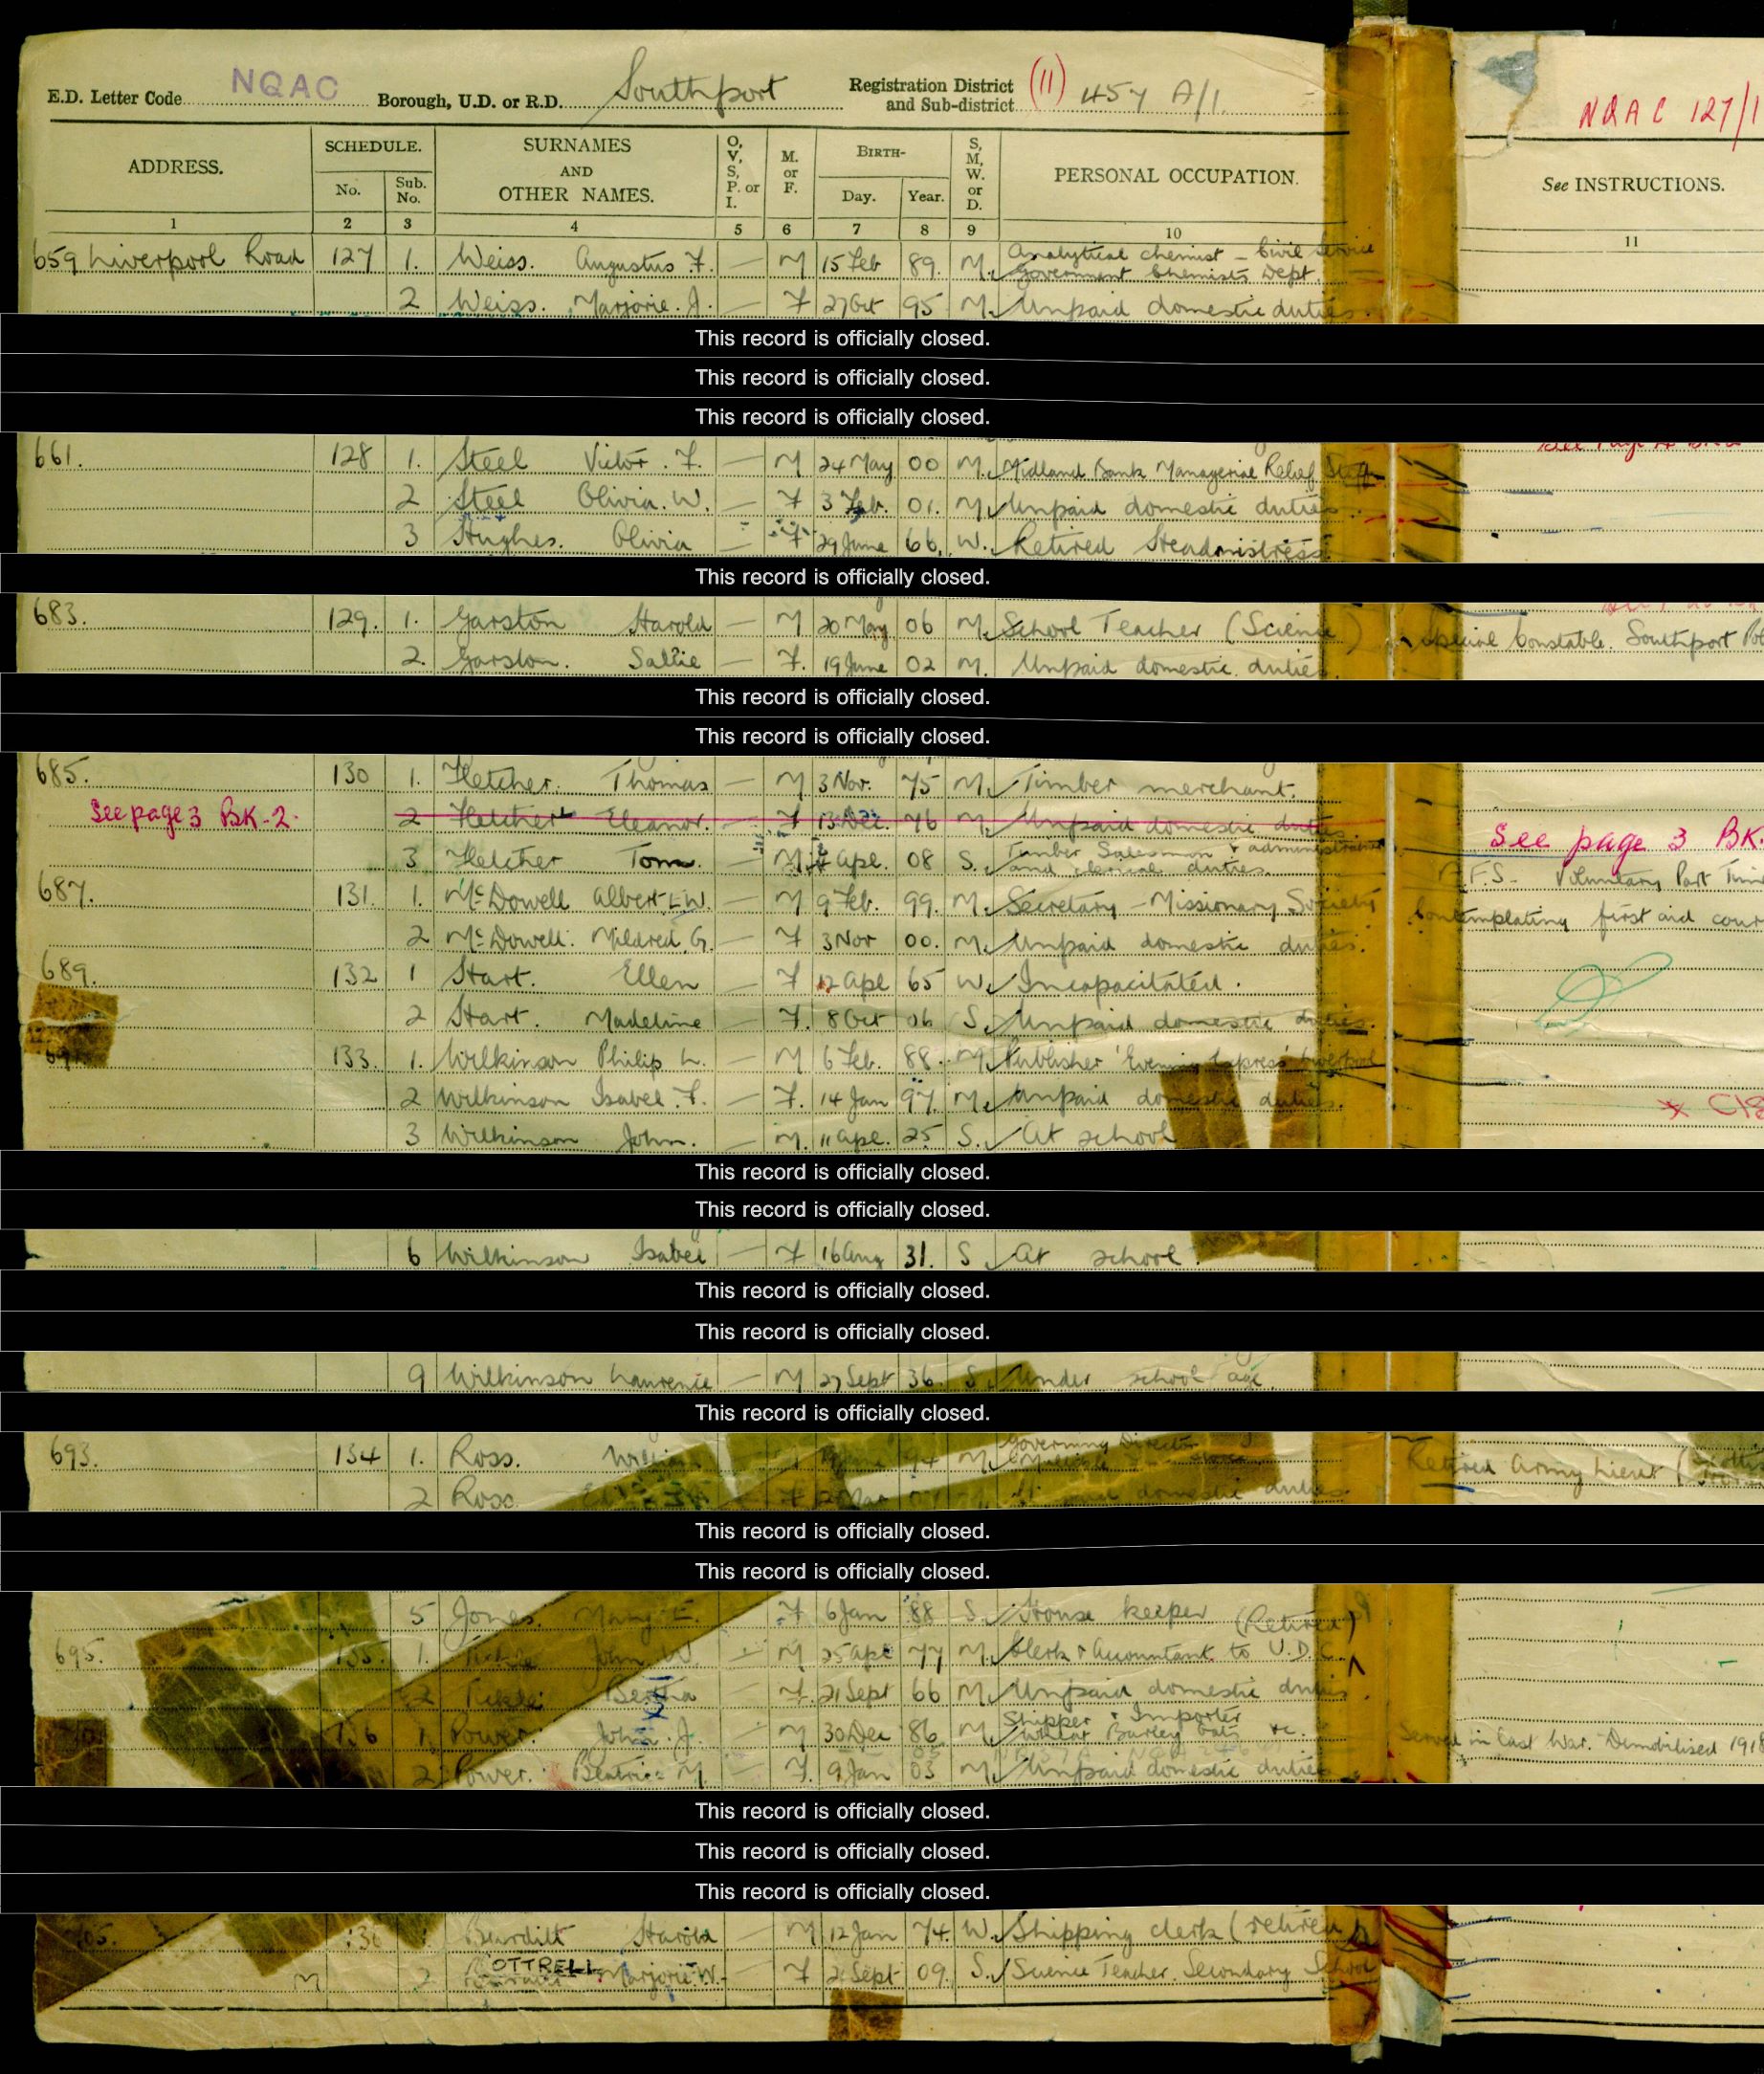 E.D. Letter Code NQAC Borough, U.D. or R.D. Southport Registration District and Sub-district (11) 457 A/1.
NQAC 127/1
ADDRESS. SCHEDULE. No. Sub. No. SURNAMES AND OTHER NAMES. O, V, S, P. or I. M. or F. BIRTH- Day. Year. S, M, W. or D. PERSONAL OCCUPATION. See INSTRUCTIONS.
1 2 3 4 5 6 7 8 9 10 11
659 Liverpool Road 127 1. Weiss. Augustus F. — M 15 Feb 89. M. Analytical chemist - Civil Service Government Chemists Dept.
2 Weiss. Marjorie. J. — F 27 Oct 95 M. Unpaid domestic duties.
This record is officially closed.
This record is officially closed.
This record is officially closed.
661. 128 1. Steel Victor. F. — M 24 May 00 M. Midland Bank Managerial Relief Staff
2 Steel Olivia. W. — F 3 Feb. 01. M. Unpaid domestic duties.
3 Hughes. Olivia — F 29 June 66. W. Retired Headmistress.
This record is officially closed.
683. 129. 1. Garston Harold — M 20 May 06 M. School Teacher (Science) Special Constable. Southport Pol
2. Garston. Sallie — F. 19 June 02 M. Unpaid domestic duties.
This record is officially closed.
This record is officially closed.
685. 130 1. Fletcher. Thomas — M 3 Nov. 75 M. Timber merchant.
See page 3 BK-2. 2 Fletcher Eleanor. — F 13 Dec. 76 M. Unpaid domestic duties. See page 3 BK.
3 Fletcher Tom. — M Apl. 08 S. Timber Salesman & administrative and clerical duties. A.F.S. - Voluntary Part Time
687. 131. 1. McDowell Albert L.W. — M 9 Feb. 99. M. Secretary - Missionary Society Contemplating first aid cour
2 McDowell. Mildred G. — F 3 Nov 00. M. Unpaid domestic duties.
689. 132 1 Start. Ellen — F 12 Apl 65 W. Incapacitated.
2 Start. Madeline — F. 8 Oct 06 S. Unpaid domestic duties.
691. 133. 1. Wilkinson Philip L. — M 6 Feb. 88. M. Publisher 'Evening Express' Liverpool
2 Wilkinson Isabel. F. — F. 14 Jan 97. M. Unpaid domestic duties.
3 Wilkinson John. — M. 11 Apl. 25 S. At school
This record is officially closed.
This record is officially closed.
6 Wilkinson Isabel — F 16 Aug 31. S At school.
This record is officially closed.
This record is officially closed.
9 Wilkinson Laurence — M 27 Sept 36. S. Under school age.
This record is officially closed.
693. 134 1. Ross. William 94 M. Governing Director Retired Army Lieut
2 Ross. F Mar domestic duties.
This record is officially closed.
This record is officially closed.
5 Jones. Mary E. F 6 Jan 88 S. House keeper
695. 135. 1. John W. — M 25 Apl 77 M. Clerk & Accountant to U.D.C. (Retired)
2 Bertha F. 21 Sept 66 M. Unpaid domestic duties.
136 1 Power. John. J. — M 30 Dec 86 M. Shipper & Importer Wheat Barley Oats &c. Served in last War. Demobilised 1918
2 Power. Beatrice M. — F. 9 Jan 03 M. Unpaid domestic duties
This record is officially closed.
This record is officially closed.
This record is officially closed.
705. Harold — M 12 Jan 74. W. Shipping clerk (retired)
M 2 COTTRELL Marjorie W. — F Sept 09. S. Science Teacher. Secondary School